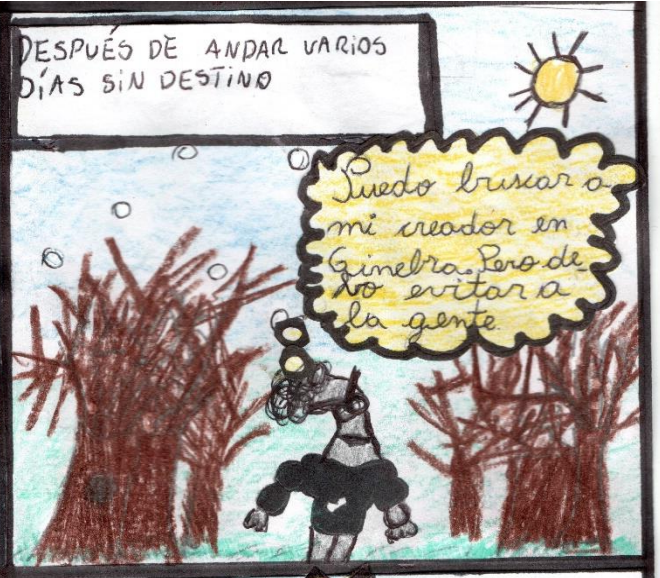 DESPUÉS DE ANDAR VARIOS
DÍAS SIN DESTINO
Puedo buscar a
mi creador en
Ginebra. Pero de_
bo evitar a
la gente.